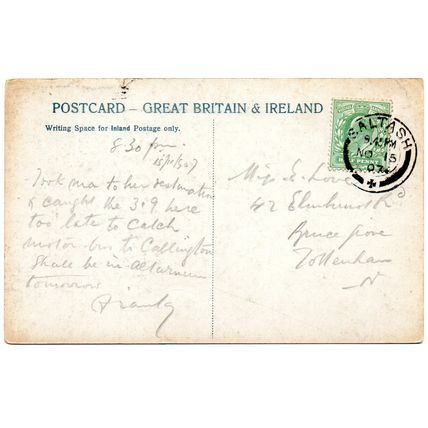 POSTCARD – GREAT BRITAIN & IRELAND
Writing Space for Inland Postage only.
8.30 pm
15/11/07
Took ma to her destination
& caught the 3.9 here
too late to catch
motor-bus to Callington
Shall be in Altarnun
tomorrow
Franky
HALF PENNY
SALTASH
8.45 PM
NO 15
07
Miss E. Love
42 Elmhurst Rd
Bruce Grove
Tottenham
N